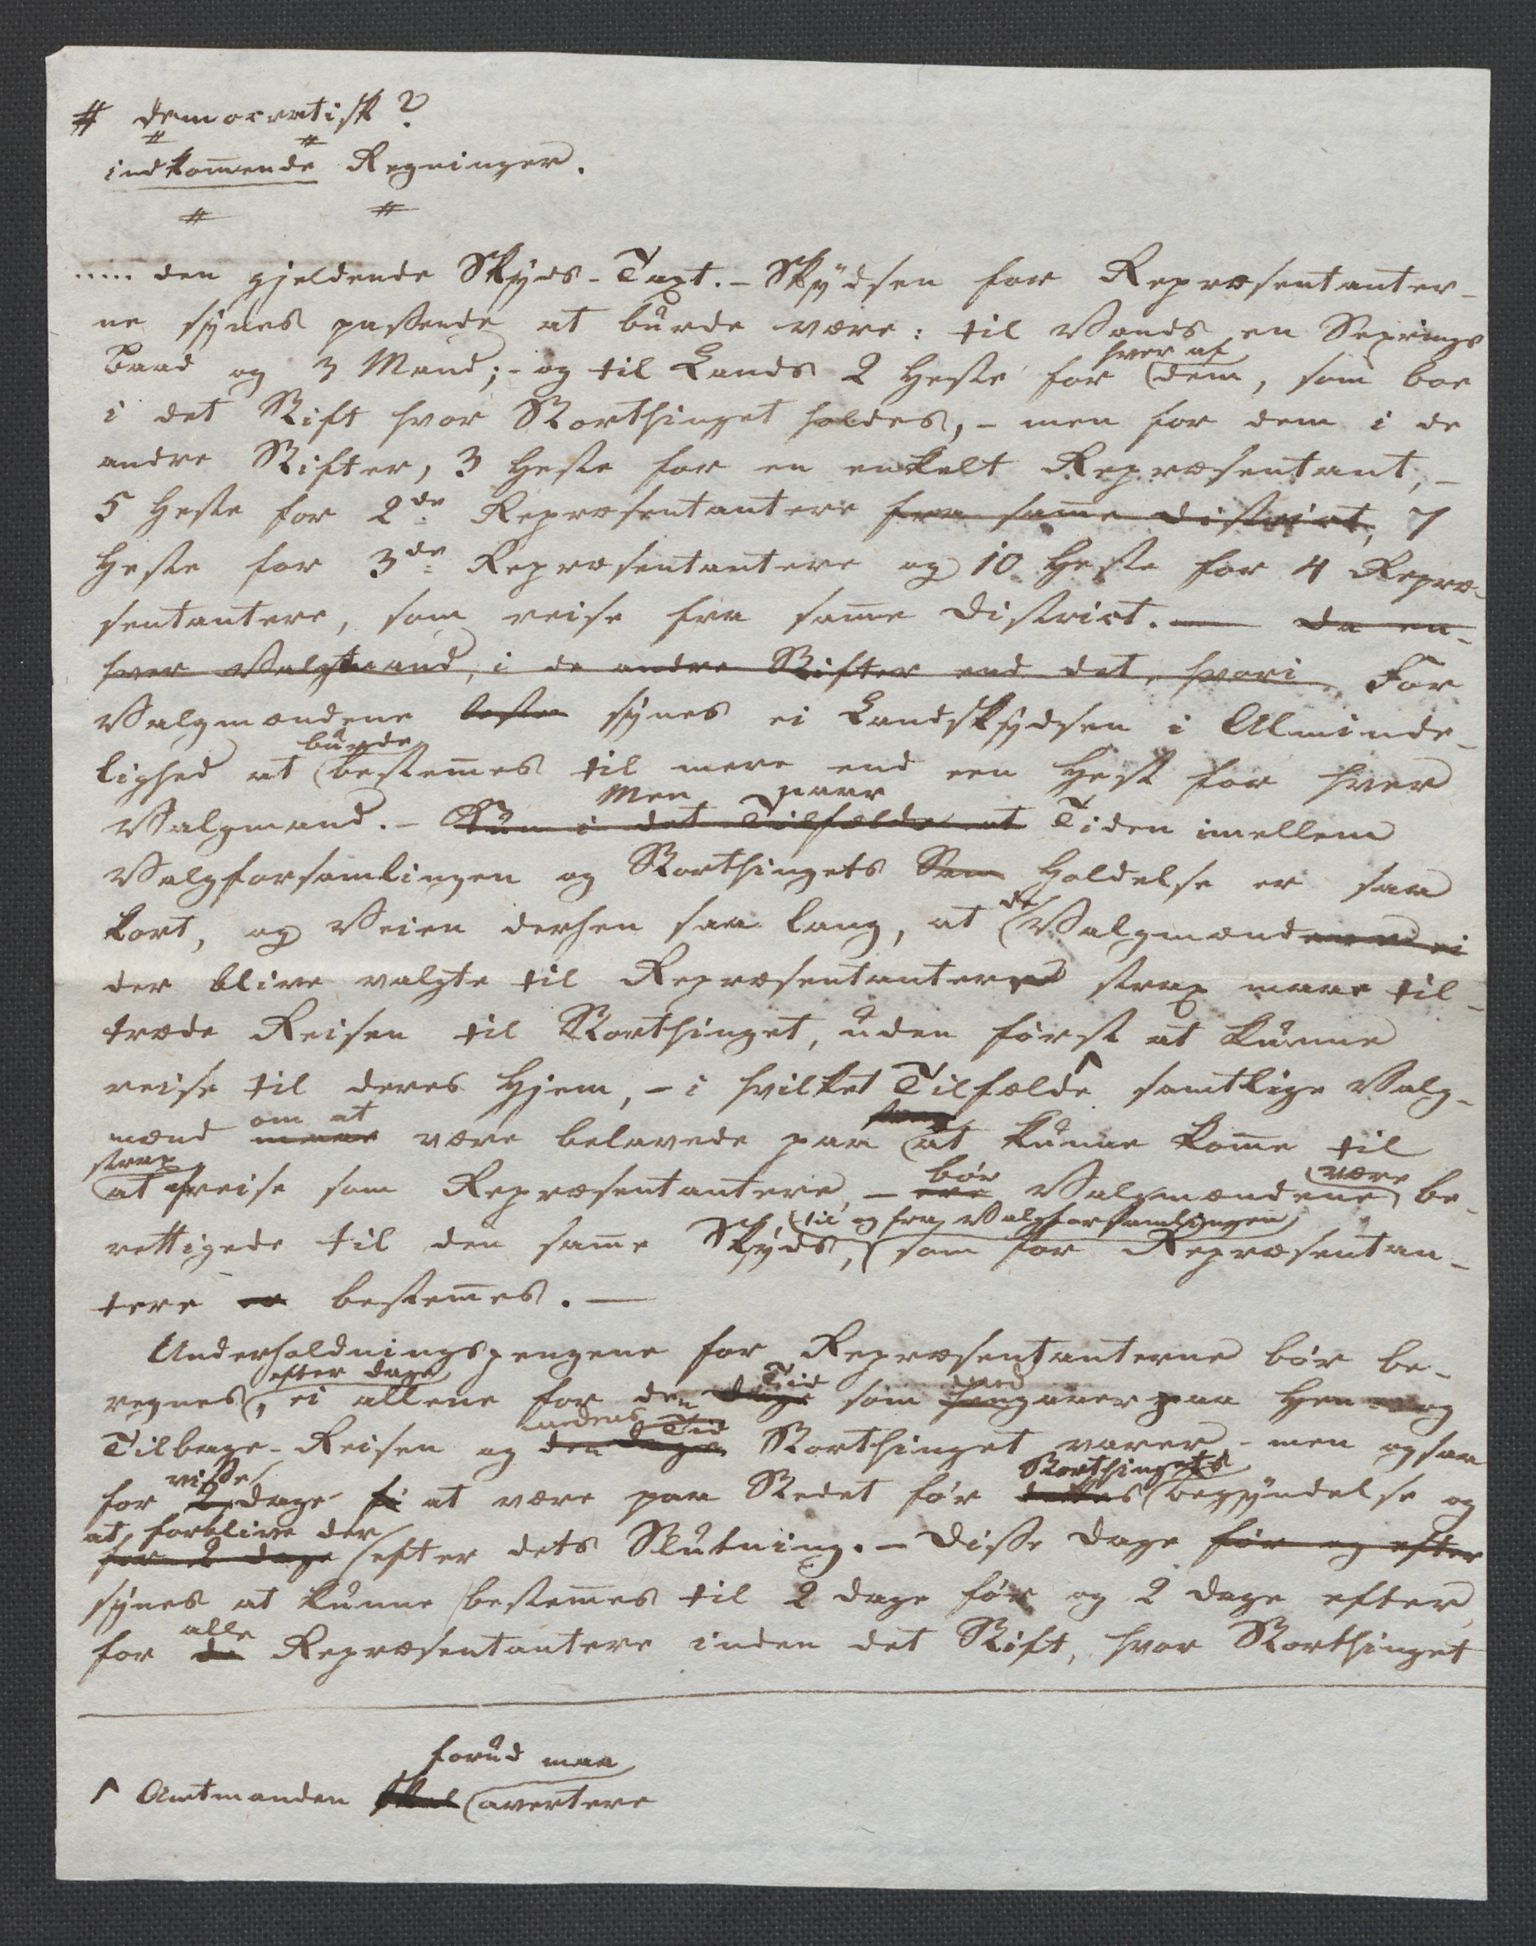 # democratisk?
# #
indkom̅ende Regninger.
# #
..... den gjeldende Skyds-Taxt. - Skydsen for Repræsentanter-
ne synes passende at burde være: til Vands en Sexrings
Baad og 3 Mand; - og til Lands 2 Heste for hver af dem, som boe
i det Stift hvor Storthinget holdes, - men for dem i de
andre Stifter, 3 Heste for en enkelt Repræsentant, -
5 Heste for 2de Repræsentantere fra sam̅e District, 7
Heste for 3de Repræsentantere og 10 Heste for 4 Repræ-
sentantere, som reise fra sam̅e District. — da en-
hver Valgmand, i de andre Stifter end det, hvori For
Valgmændene synes ei Landskydsen i Alminde-
lighed at burde bestem̅es til mere end een Hest for hver
Men naar
Valgmand. - Kun i det Tilfælde at Tiden imellem
Valgforsamlingen og Storthingets Holdelse er saa
kort, og Veien derhen saa lang, at de Valgmænd ei
der blive valgte til Repræsentantere strax maae til-
træde Reisen til Storthinget, uden først at kunne
reise til deres Hjem, - i hvilket Tilfælde ^ samtlige Valg-
mænd om at maae være belavede paa at kunne kom̅e til
strax
at reise som Repræsentantere, - ere bør Valgmændene være be-
rettigede til den sam̅e Skyds, til og fra Valgforsamlingen, som for Repræsentan-
tere er bestem̅es. —
Underholdningspengene for Repræsentanterne bør be-
regnes efter Dage, ei allene for den Dage Tid som medgaaer paa Hen- og
Tilbage-Reisen og den Dage Tid Storthinget varer - men ogsaa
for 2 visse Dage at være paa Stedet før dettes Storthingets begyndelse og
at forblive der
for 2 Dage efter dets Slutning. - Disse Dage før og efter
synes at kunne bestem̅es til 2 Dage før og 2 Dage efter
for de alle Repræsentantere inden det Stift, hvor Storthinget
forud maa
^ Amtmanden skal avertere